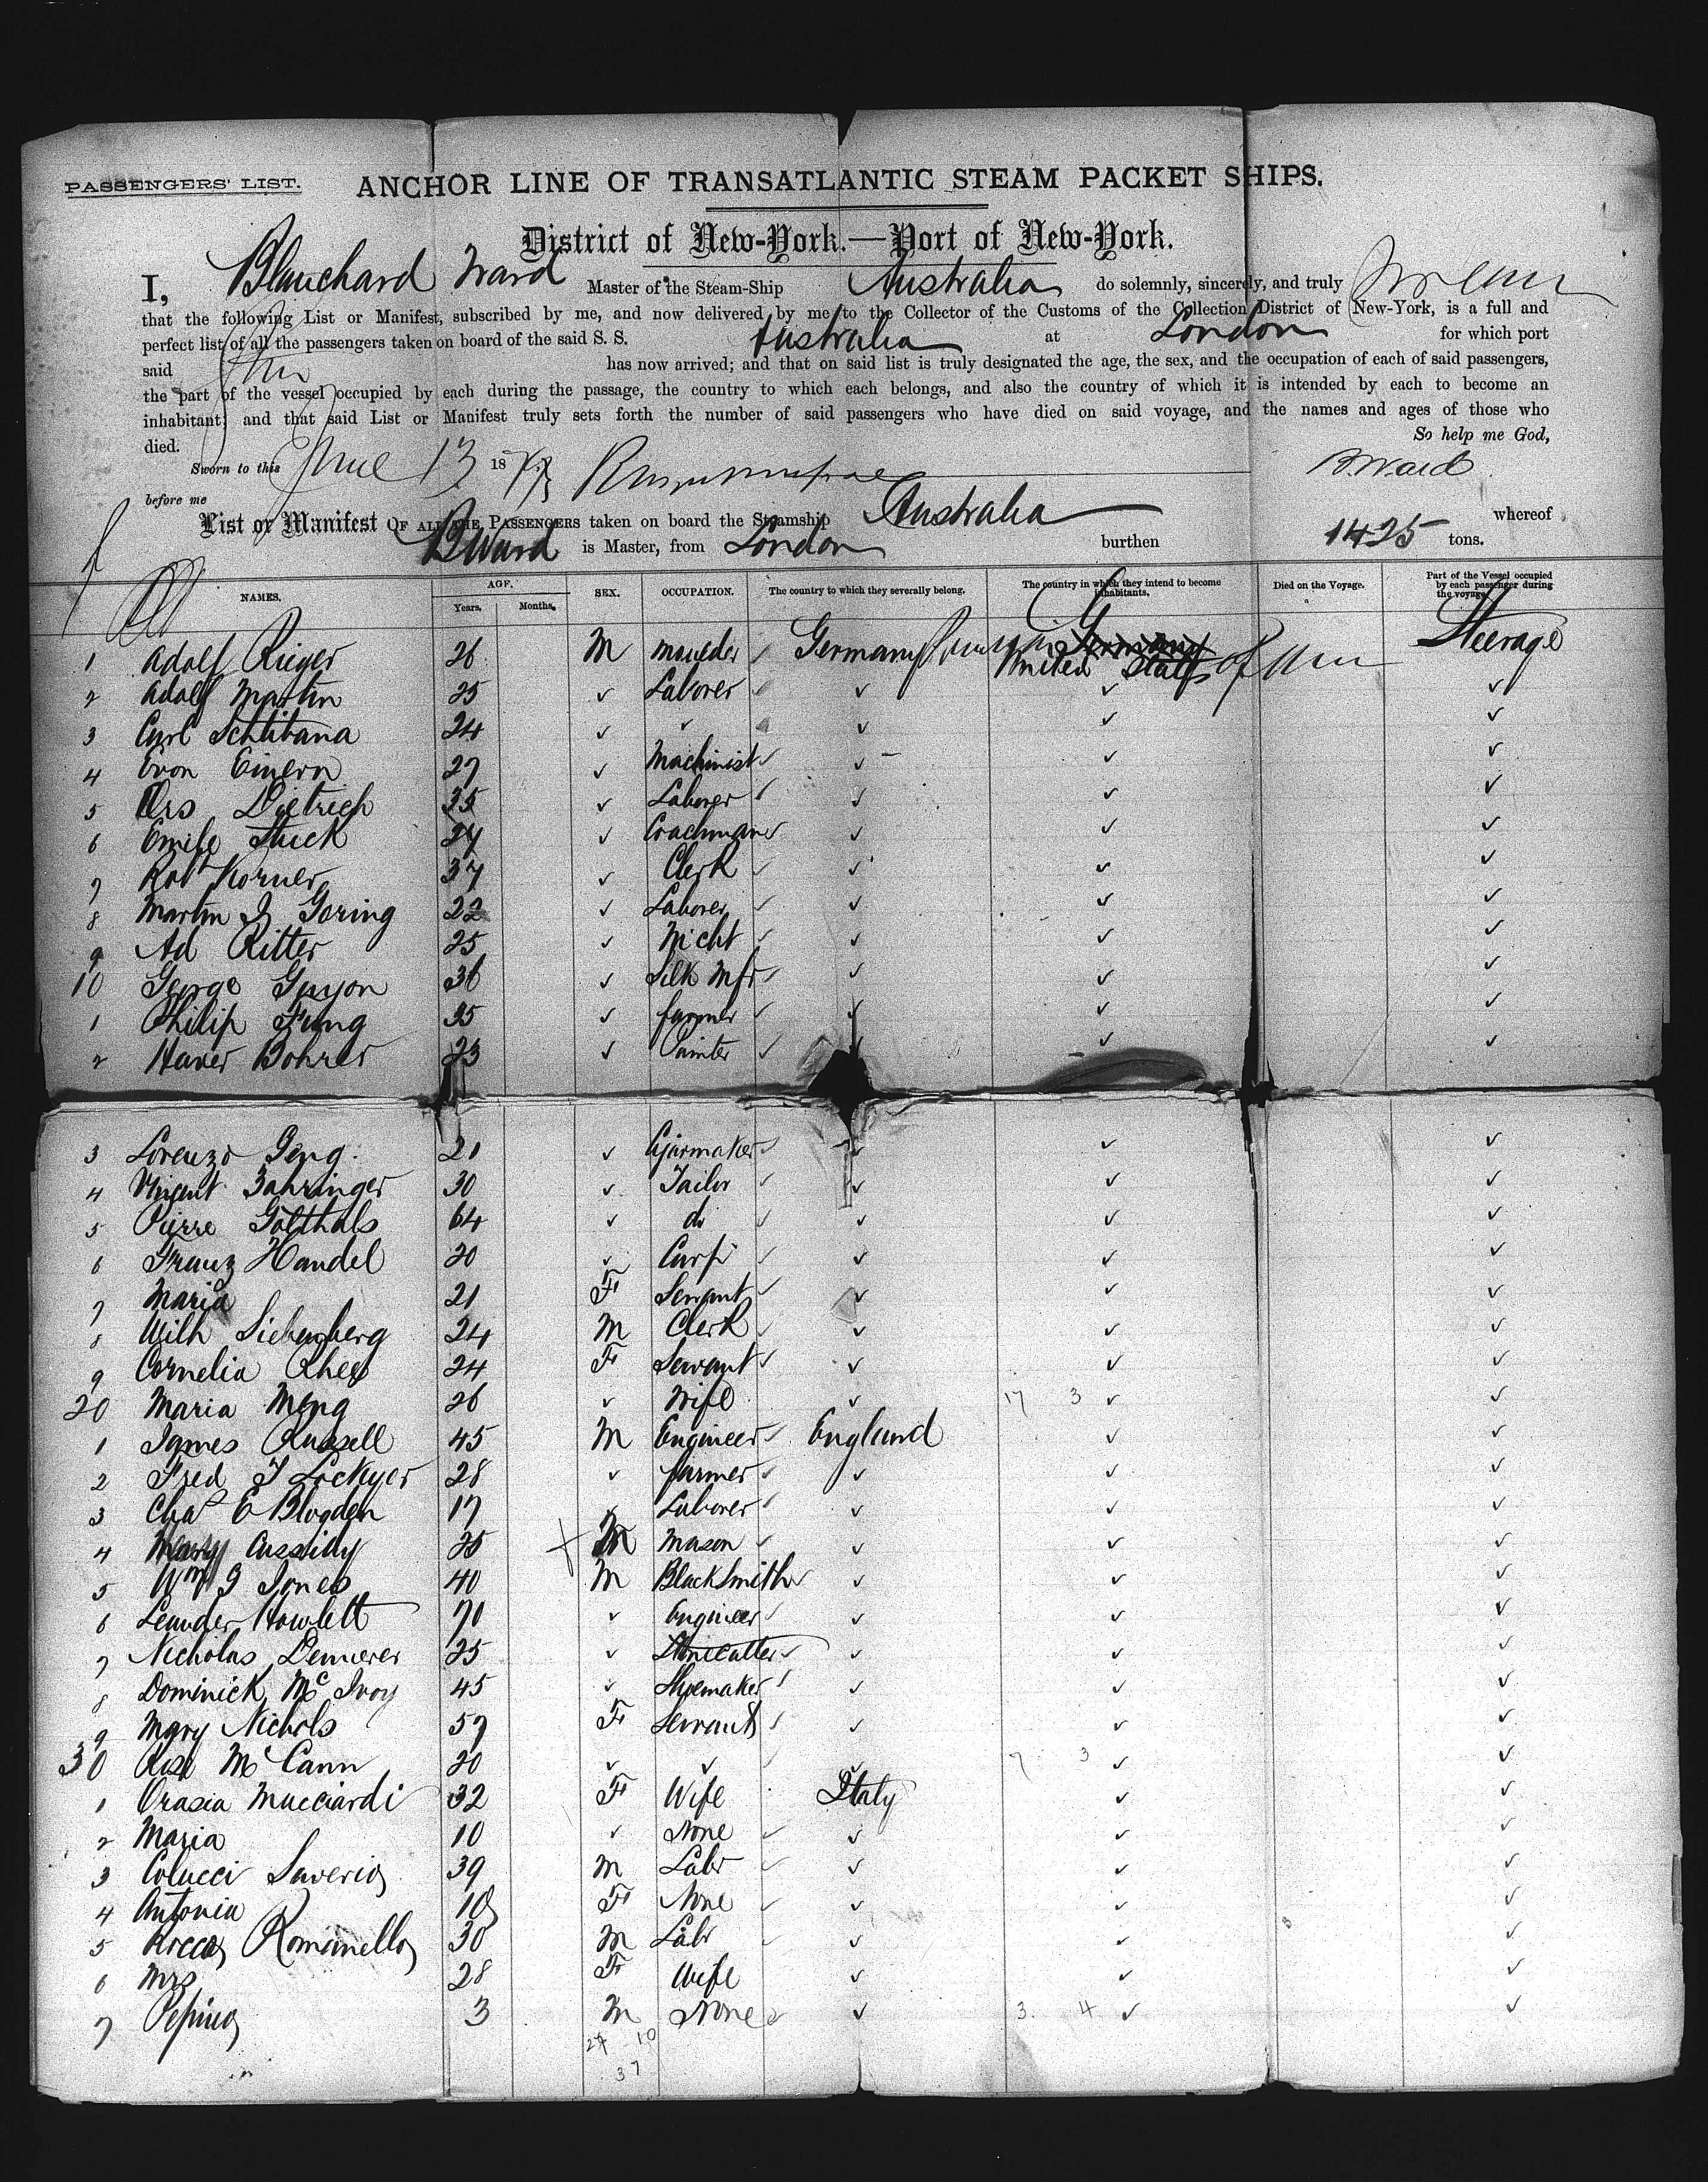 PASSENGERS' LIST.
ANCHOR LINE OF TRANSATLANTIC STEAM PACKET SHIPS.
District of New-York.—Port of New-York.
I, Blanchard Ward Master of the Steam-Ship Australia do solemnly, sincerely, and truly swear
that the following List or Manifest, subscribed by me, and now delivered by me to the Collector of the Customs of the Collection District of New-York, is a full and
perfect list of all the passengers taken on board of the said S. S. Australia at London for which port
said has now arrived; and that on said list is truly designated the age, the sex, and the occupation of each of said passengers,
the part of the vessel occupied by each during the passage, the country to which each belongs, and also the country of which it is intended by each to become an
inhabitant; and that said List or Manifest truly sets forth the number of said passengers who have died on said voyage, and the names and ages of those who
died.
So help me God,
Sworn to this June 13 187
B. Ward
before me
List or Manifest OF ALL THE PASSENGERS taken on board the Steamship Australia whereof
B Ward is Master, from London burthen 1425 tons.
NAMES. AGE. Years. Months. SEX. OCCUPATION. The country to which they severally belong. The country in which they intend to become inhabitants. Died on the Voyage. Part of the Vessel occupied by each passenger during the voyage.
1 Adolf Rieger 26 M Moulder ✓ Germany Germany United States of Steerage
2 Adolf Martin 25 ✓ Laborer ✓ ✓ ✓ ✓
3 Carl Schlibana 24 ✓ ✓ ✓ ✓ ✓
4 Evon Einern 27 ✓ Machinist ✓ ✓ ✓ ✓
5 Urs Dietrich 35 ✓ Laborer ✓ ✓ ✓ ✓
6 Emile Stuck 24 ✓ Coachman ✓ ✓ ✓ ✓
7 Robt Korner 37 ✓ Clerk ✓ ✓ ✓ ✓
8 Martin J Goring 22 ✓ Laborer ✓ ✓ ✓ ✓
9 Ad Ritter 25 ✓ Micht ✓ ✓ ✓ ✓
10 George Guyon 36 ✓ Silk Mfr ✓ ✓ ✓ ✓
1 Philip Fung 35 ✓ farmer ✓ ✓ ✓ ✓
2 Haver Bohrer 23 ✓ Painter ✓ ✓ ✓ ✓
3 Lorenzo Geng 21 ✓ Cigarmaker ✓ ✓ ✓ ✓
4 Vincent Zahringer 30 ✓ Tailor ✓ ✓ ✓ ✓
5 Pierre Golthals 64 ✓ do ✓ ✓ ✓ ✓
6 Franz Handel 20 ✓ Carp ✓ ✓ ✓ ✓
7 Maria 21 F Servant ✓ ✓ ✓ ✓
8 Wilh Siebenberg 24 M Clerk ✓ ✓ ✓ ✓
9 Cornelia Rhee 24 F Servant ✓ ✓ ✓ ✓
20 Maria Meng 26 ✓ Wife ✓ 17 3 ✓ ✓
1 James Russell 45 M Engineer ✓ England ✓ ✓
2 Fred J Lockyer 28 ✓ farmer ✓ ✓ ✓ ✓
3 Chas E Blogden 17 ✓ Laborer ✓ ✓ ✓ ✓
4 Mary Cassidy 25 M Mason ✓ ✓ ✓ ✓
5 Wm G Jones 40 M BlackSmith ✓ ✓ ✓ ✓
6 Leander Howlett 70 ✓ Engineer ✓ ✓ ✓ ✓
7 Nicholas Demerer 25 ✓ Stonecutter ✓ ✓ ✓ ✓
8 Dominick McIvoy 45 ✓ Shoemaker ✓ ✓ ✓ ✓
9 Mary Nichols 57 F Servant ✓ ✓ ✓ ✓
30 Rose McCann 20 ✓ ✓ ✓ ✓ 7 3 ✓ ✓
1 Orasia Mucciardi 32 F Wife Italy ✓ ✓
2 Maria 10 ✓ None ✓ ✓ ✓ ✓
3 Colucci Saverio 39 M Labr ✓ ✓ ✓ ✓
4 Antonia 10 F None ✓ ✓ ✓ ✓
5 Rocco Romanello 30 M Labr ✓ ✓ ✓ ✓
6 Mrs 28 F Wife ✓ ✓ ✓
7 Pepino 3 M None ✓ ✓ 3. 4 ✓ ✓
27 10
37